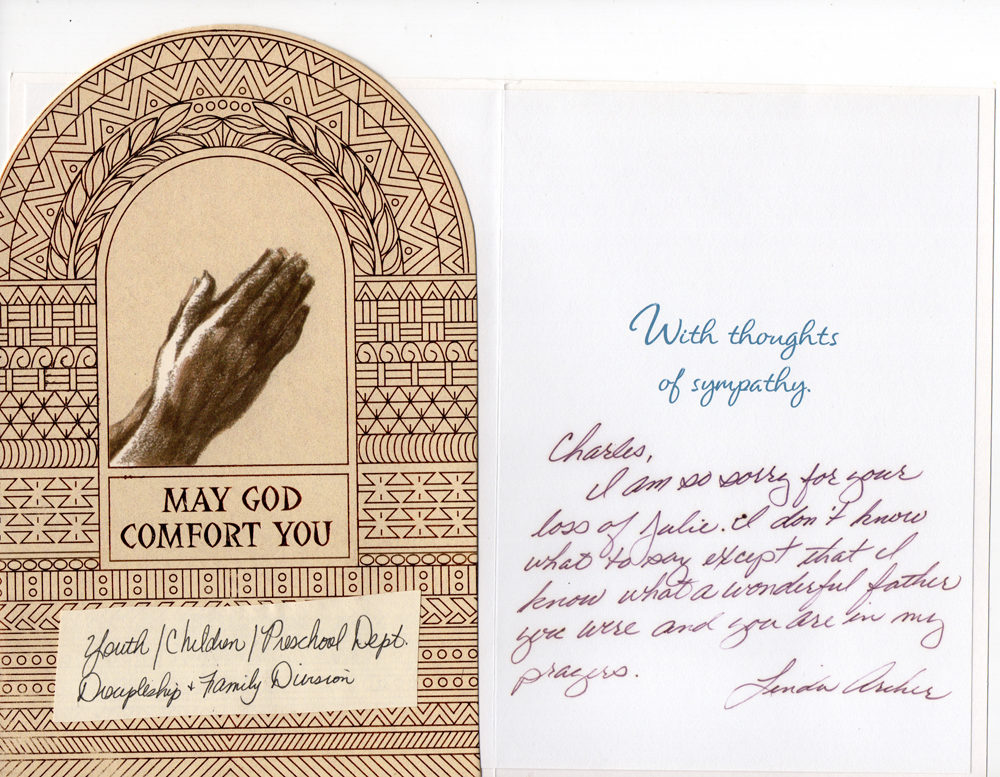 MAY GOD
COMFORT YOU
Youth/Children/Preschool Dept.
Discipleship + Family Division
With thoughts
of sympathy.
Charles,
I am so sorry for your
loss of Julie. I don't know
what to say except that I
know what a wonderful father
you were and you are in my
prayers.
Linda Archer